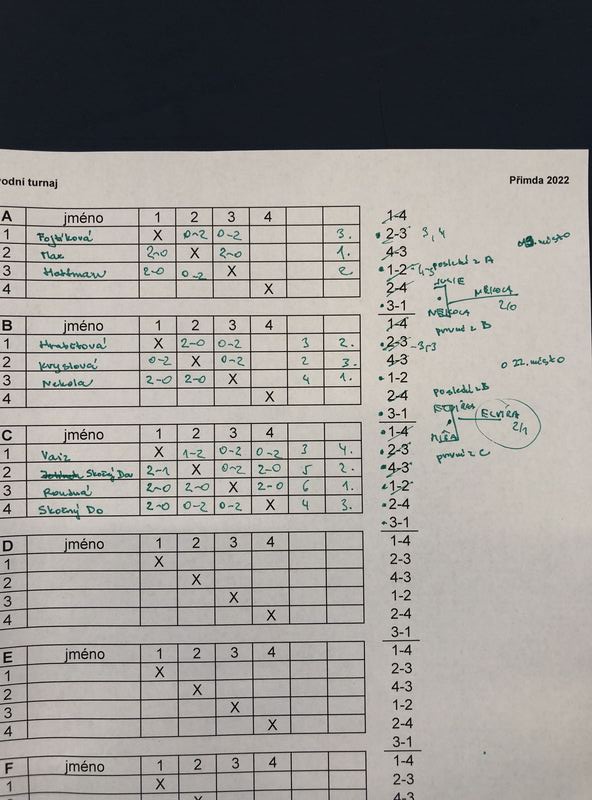 vodní turnaj Přimda 2022
A jméno 1 2 3 4
1 Fojtíková X 0-2 0-2 3.
2 Max 2-0 X 2-0 1.
3 Hoffman 2-0 0-2 X 2
4 X
1-4
2-3 3,4
4-3
1-2
2-4
3-1
místo
poslední z A
JULIE
NEKOLA
2/0
NEKOLA
první z B
B jméno 1 2 3 4
1 Hrabětová X 2-0 0-2 3 2.
2 Kryslová 0-2 X 0-2 2 3.
3 Nekola 2-0 2-0 X 4 1.
4 X
1-4
2-3
4-3
1-2
2-4
3-1
o 22. místo
poslední z B
ELVÍRA
2/1
první z C
C jméno 1 2 3 4
1 Vaiz X 1-2 0-2 0-2 3 4.
2 Skočný Dan 2-1 X 0-2 2-0 5 2.
3 Roudná 2-0 2-0 X 2-0 6 1.
4 Skočný Do 2-0 0-2 0-2 X 4 3.
1-4
2-3
4-3
1-2
2-4
3-1
D jméno 1 2 3 4
1 X
2 X
3 X
4 X
1-4
2-3
4-3
1-2
2-4
3-1
E jméno 1 2 3 4
1 X
2 X
3 X
4 X
1-4
2-3
4-3
1-2
2-4
3-1
F jméno 1 2 3 4
1 X
X
1-4
2-3
4-3